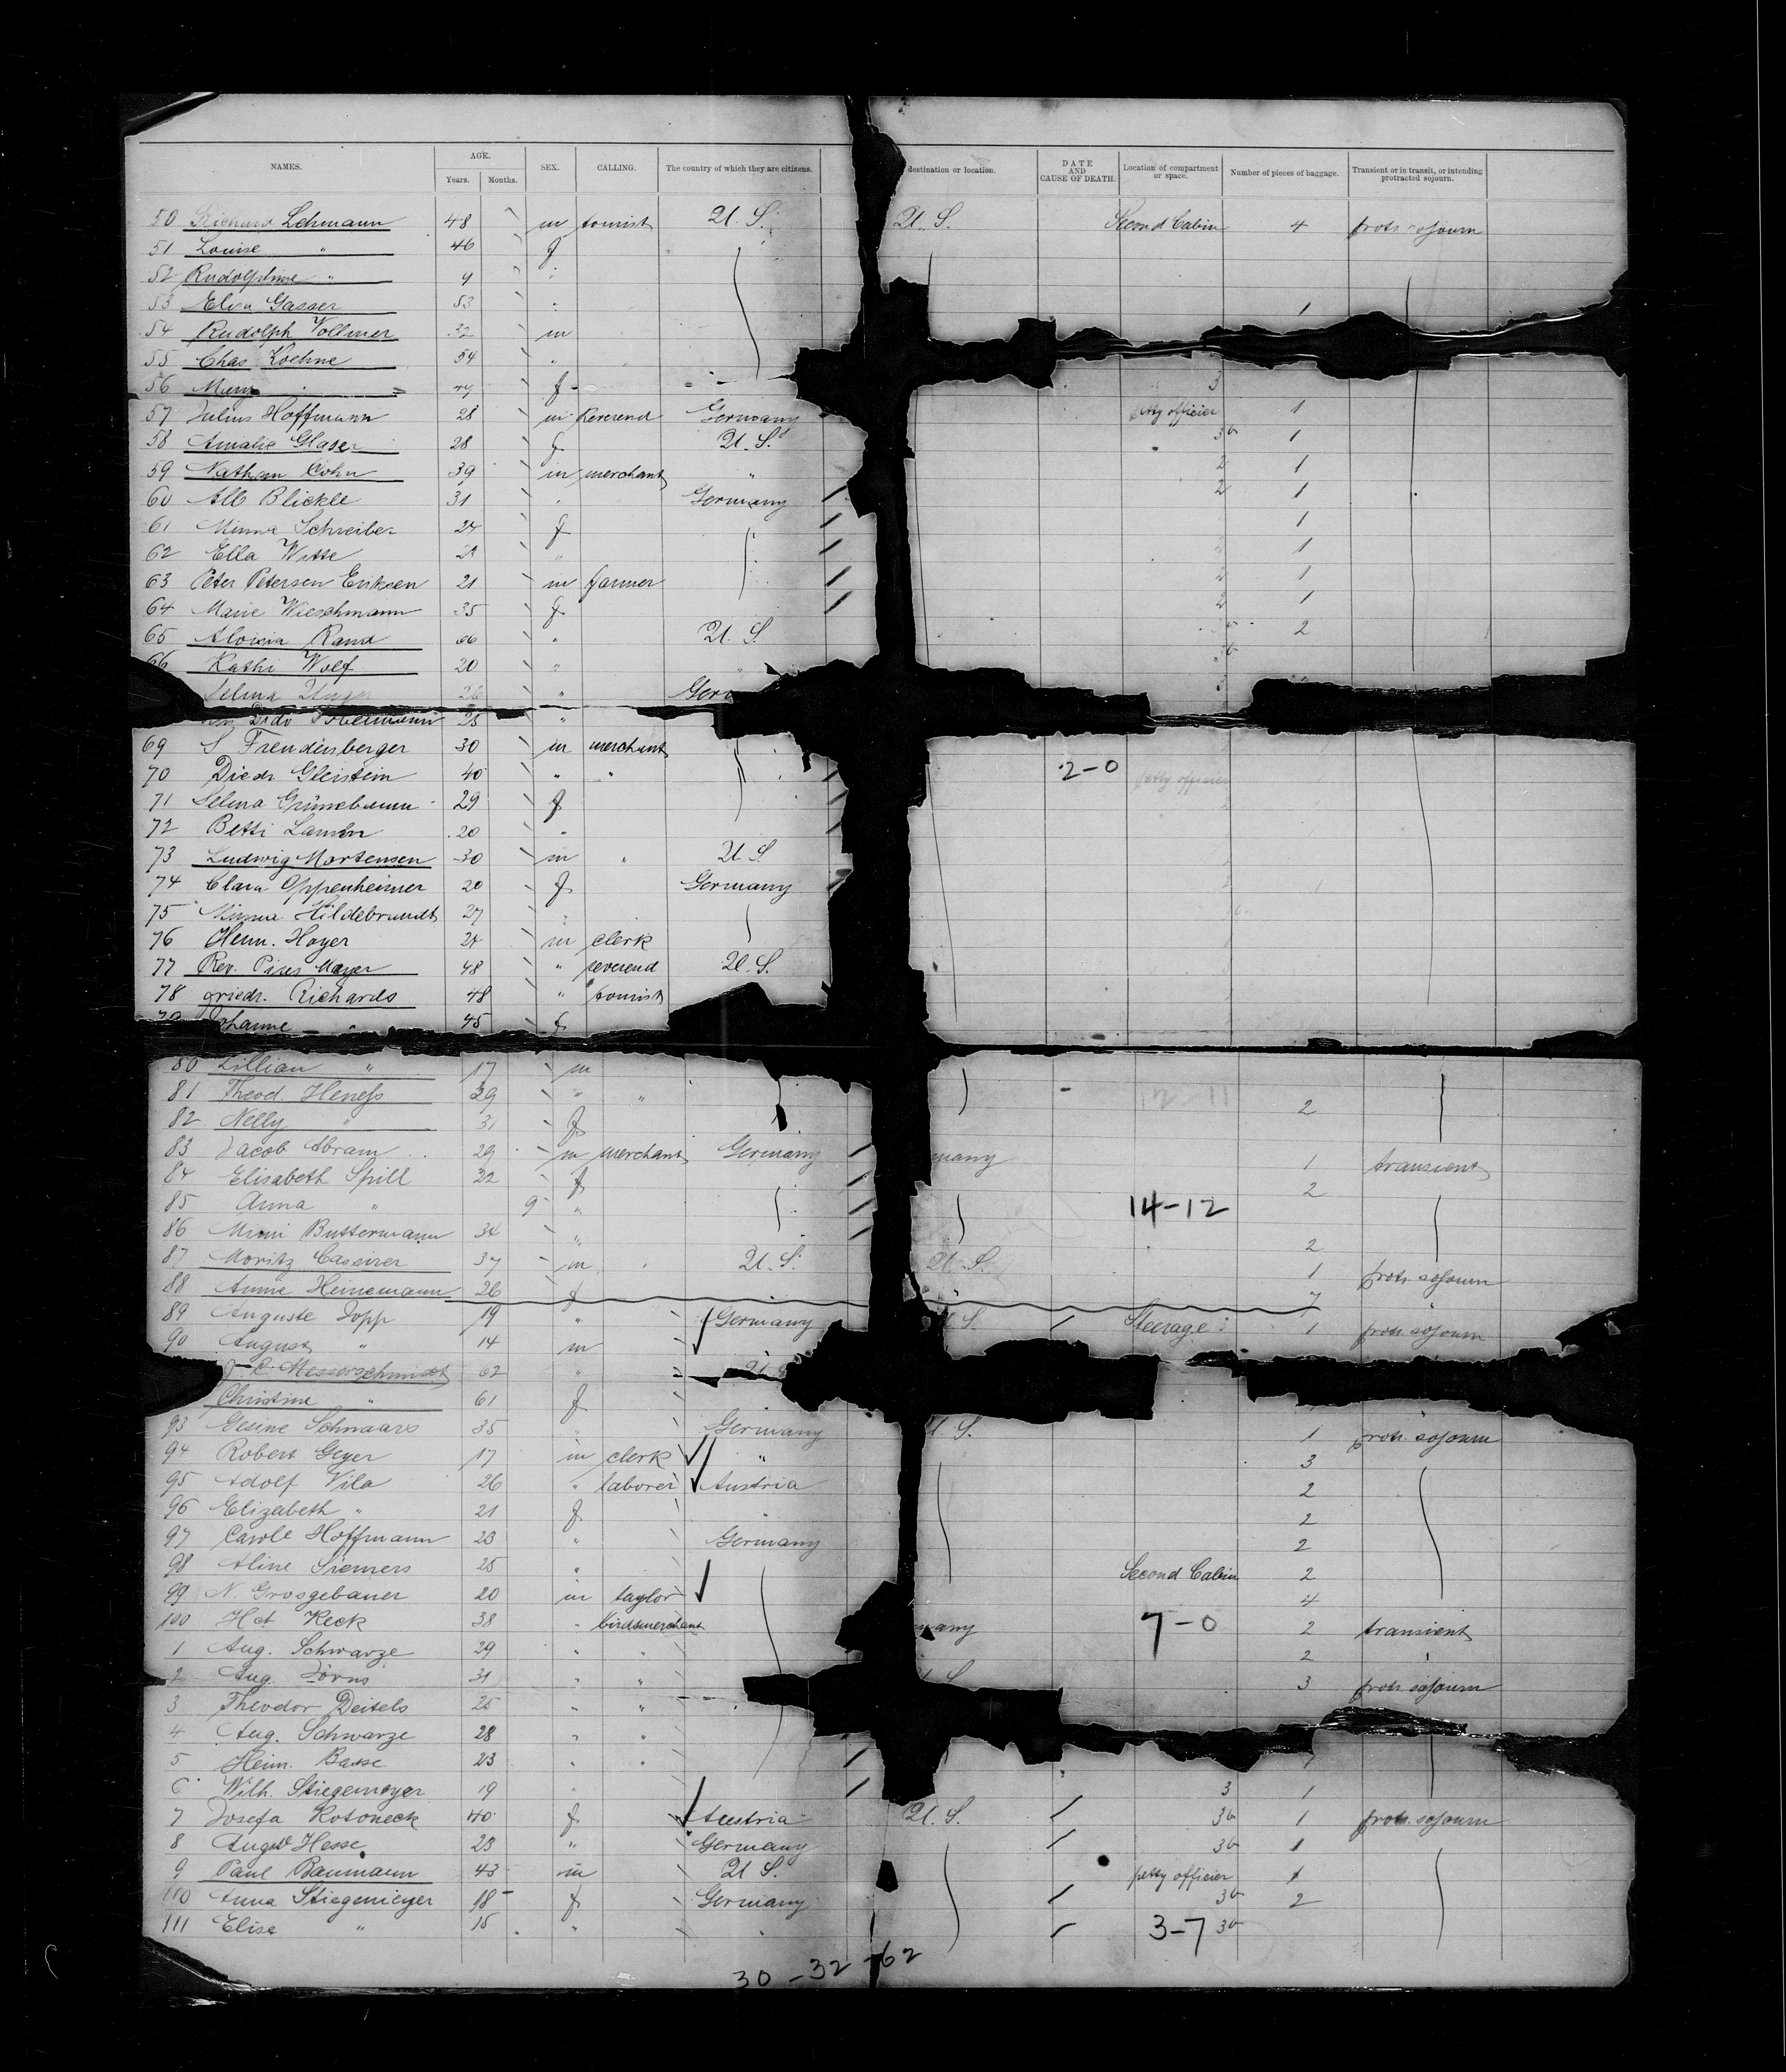 NAMES. AGE. Years. Months. SEX. CALLING. The country of which they are citizens. destination or location. DATE AND CAUSE OF DEATH. Location of compartment or space. Number of pieces of baggage. Transient or in transit, or intending protracted sojourn.
50 Richard Lehmann 48 m tourist U. S. U. S. Second Cabin 4 protr sojourn
51 Louise " 46 f
52 Rudolphine " 9
53 Elisa Gasser 53 1
54 Rudolph Vollmer 32 m
55 Chas Koehne 54
56 Mary 49 f 3
57 Julius Hoffmann 28 m Reverend Germany petty officier 1
58 Amalie Glaser 28 f U. S. 1
59 Nathan Cohn 39 m merchant " 2 1
60 Alb Blickle 31 Germany 2 1
61 Minna Schreiber 24 f 1
62 Ella Witte " 1
63 Peter Petersen Eriksen 21 m farmer 2 1
64 Marie Wieschmann 35 f 2 1
65 Aloisia Rand 66 " U. S. 2
66 Kathi Wolf 20 " "
Selma Unger 26 " Ger
28 "
69 S Freudenberger 30 m merchant
70 Diedr Gleistein 40 " " 2-0 petty officier
71 Selma Grünebaum 29 f
72 Betti 20 "
73 Ludwig Mortensen 30 m " U. S.
74 Clara Oppenheimer 20 f Germany
75 Minna Hildebrandt 27 "
76 Heinr. Hoyer 24 m clerk
77 Rev. Pius Mayer 48 " reverend U. S.
78 Friedr. Richards 48 " tourist
79 Johanne " 45 f
80 Lillian " 17 m
81 Theod. Heness 39 " " 2
82 Nelly " 31 f
83 Jacob Abram 29 m merchant Germany many 1 transient
84 Elisabeth Spill 32 f 2
85 Anna " 9 " 14-12
86 Mimi Buttermann 34 " 2
87 Moritz Cassirer 37 m " U. S. U. S. 1 protr sojourn
88 Annie Heinemann 26 f 7
89 Auguste Jopp 19 " Germany U. S. Steerage 1 protr sojourn
90 August " 14 m
J. C. Messerschmidt 62 " U. S
Christine " 61 f
93 Gesine Schnaars 35 " Germany U. S. 1 protr. sojourn
94 Robert Geyer 17 m clerk " 3
95 Adolf Vila 26 " laborer Austria 2
96 Elizabeth " 21 f " 2
97 Carole Hoffmann 23 " Germany 2
98 Aline Siemers 25 " Second Cabin 2
99 N Grosgebauer 20 m taylor 4
100 Hct Keck 38 " birdsmerchant many 7-0 2 transient
1 Aug. Schwarze 29 " " 2 "
2 Aug. Jörns 31 " " S 3 protr. sojourn
3 Theodor Deitels 25 " "
4 Aug. Schwarze 28 " "
5 Heinr. Basse 23 " "
6 Wilh. Stiegemeyer 19 " 3 1
7 Josefa Kotoneck 40 f Austria U. S. 36 1 protr. sojourn
8 August Hesse 23 " Germany 36 1
9 Paul Baumann 43 m U. S. petty officier 1
110 Anna Stiegemeyer 18 f Germany 36 2
111 Elise " 15 " " 3-7 36
30 - 32 - 62